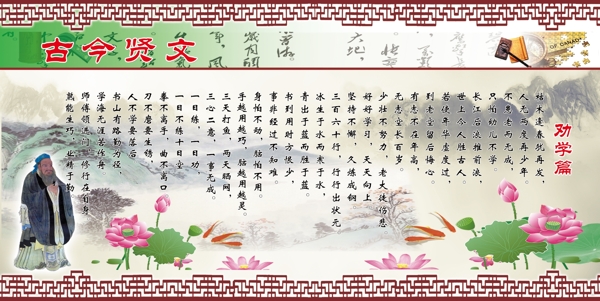 古今贤文
OF CANADA
劝学篇
枯木逢春犹再发，
人无两度再少年。
不患老而无成，
只怕幼儿不学。
长江后浪推前浪，
世上今人胜古人。
若使年华虚度过，
到老空留后悔心。
有志不在年高，
无志空长百岁。
少壮不努力，老大徒伤悲
好好学习，天天向上
坚持不懈，久炼成钢
三百六十行，行行出状元
冰生于水而寒于水，
青出于蓝而胜于蓝。
书到用时方恨少，
事非经过不知难。
身怕不动，脑怕不用。
手越用越巧，脑越用越灵。
三天打鱼，两天晒网，
三心二意，一事无成。
一日练，一日功，
一日不练十日空
拳不离手，曲不离口
刀不磨要生锈，
人不学要落后
书山有路勤为径
学海无涯苦作舟
师傅领进门，修行在自身
熟能生巧，业精于勤